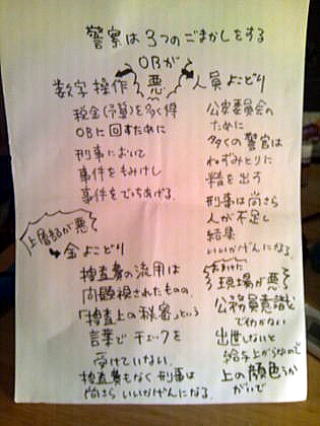 警察は3つのごまかしをする
OBが
悪
数字操作
税金(予算)を多く得
OBに回すために
刑事において
事件をもみけし
事件をでっちあげる.
人員よこどり
公安委員会の
ために
多くの警官は
ねずみとりに
精を出す
刑事は尚さら
人が不足し
結果
いいかげんになる.
上層部が悪
金よこどり
捜査費の流用は
問題視されたものの,
「捜査上の秘密」という
言葉でチェックを
受けていない.
捜査費もなく刑事は
尚さらいいかげんになる.
おまけに
現場が悪
公務員意識
でわかない
出世しないと
給与上がらなので
上の顔色うか
がいで